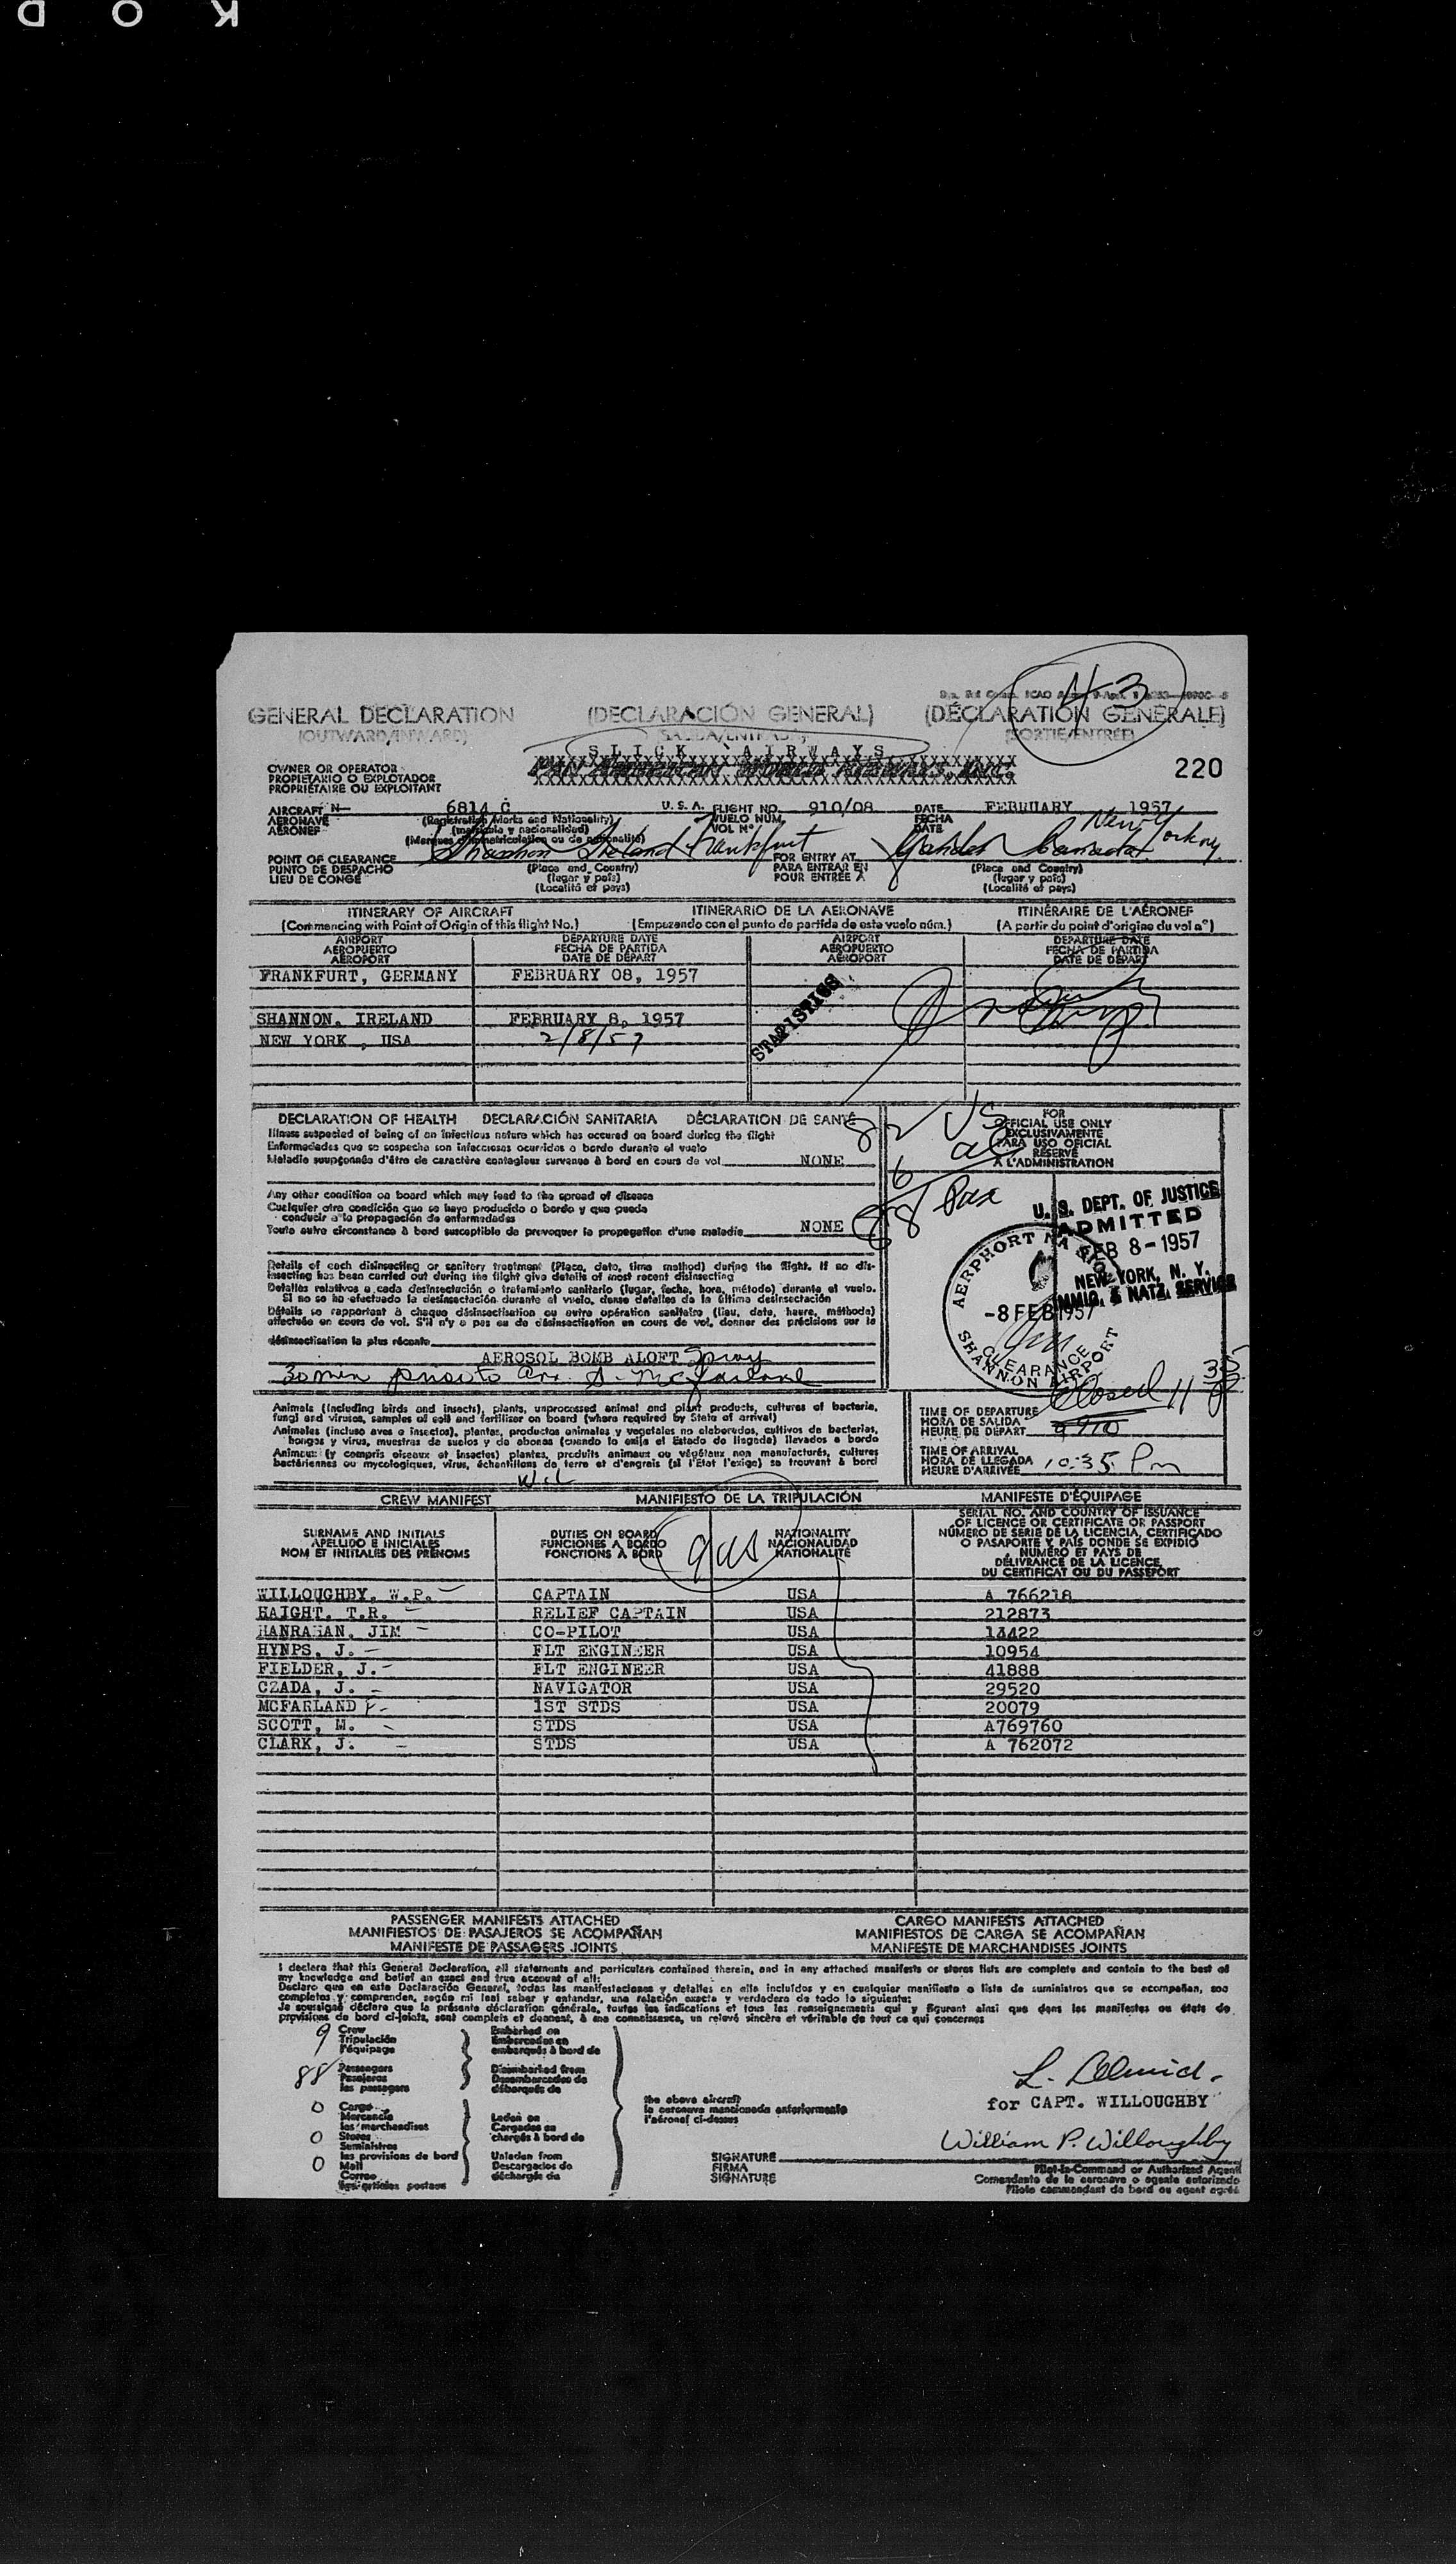 K O D
N-3
GENERAL DECLARATION (DECLARACIÓN GENERAL) (DÉCLARATION GÉNÉRALE)
(OUTWARD/INWARD) (SALIDA/ENTRADA) (SORTIE/ENTRÉE)
SLICK AIRWAYS
OWNER OR OPERATOR PAN AMERICAN WORLD AIRWAYS, INC. 220
PROPIETARIO O EXPLOTADOR
PROPRIÉTAIRE OU EXPLOITANT
AIRCRAFT N- 6814 C U. S. A. FLIGHT NO. 910/08 DATE FEBRUARY 1957
AERONAVE (Registration Marks and Nationality) VUELO NÚM. FECHA
AÉRONEF (matrícula y nacionalidad) VOL N° DATE
(Marques d'immatriculation ou de nationalité)
Shannon Ireland Frankfurt Gander Canada New York NY
POINT OF CLEARANCE (Place and Country) FOR ENTRY AT (Place and Country)
PUNTO DE DESPACHO (lugar y país) PARA ENTRAR EN (lugar y país)
LIEU DE CONGÉ (Localité et pays) POUR ENTRÉE À (Localité et pays)
ITINERARY OF AIRCRAFT ITINERARIO DE LA AERONAVE ITINÉRAIRE DE L'AÉRONEF
(Commencing with Point of Origin of this flight No.) (Empezando con el punto de partida de este vuelo núm.) (A partir du point d'origine du vol n°)
AIRPORT DEPARTURE DATE AIRPORT DEPARTURE DATE
AEROPUERTO FECHA DE PARTIDA AEROPUERTO FECHA DE PARTIDA
AÉROPORT DATE DE DÉPART AÉROPORT DATE DE DÉPART
FRANKFURT, GERMANY FEBRUARY 08, 1957
STATISTICS
SHANNON, IRELAND FEBRUARY 8, 1957
NEW YORK , USA 2/8/57
DECLARATION OF HEALTH DECLARACIÓN SANITARIA DÉCLARATION DE SANTÉ
Illness suspected of being of an infectious nature which has occured on board during the flight
Enfermedades que se sospecha son infecciosas ocurridas a bordo durante el vuelo
Maladie soupçonnée d'être de caractère contagieux survenue à bord en cours de vol NONE
82 US
6 al
88 Pax
FOR
OFFICIAL USE ONLY
EXCLUSIVAMENTE
PARA USO OFICIAL
RESERVÉ
À L'ADMINISTRATION
Any other condition on board which may lead to the spread of disease
Cualquier otra condición que se haya producido a bordo y que pueda
conducir a la propagación de enfermedades
Toute autre circonstance à bord susceptible de provoquer la propagation d'une maladie NONE
U. S. DEPT. OF JUSTICE
ADMITTED
FEB 8-1957
NEW YORK, N. Y.
IMMIG. & NATZ. SERVICE
AERPHORT NA SIONNA
-8 FEB 1957
CLEARANCE
SHANNON AIRPORT
Details of each disinsecting or sanitary treatment (Place, date, time method) during the flight. If no dis-
insecting has been carried out during the flight give details of most recent disinsecting
Detalles relativos a cada desinsectación o tratamiento sanitario (lugar, fecha, hora, método) durante el vuelo.
Si no se ha efectuado la desinsectación durante el vuelo, dense detalles de la última desinsectación
Détails se rapportant à chaque désinsectisation ou autre opération sanitaire (lieu, date, heure, méthode)
effectuée en cours de vol. S'il n'y a pas eu de désinsectisation en cours de vol, donner des précisions sur la
désinsectisation la plus récente
AEROSOL BOMB ALOFT Spray
30 min prior to arr. S. McFarland
Closed 11 35 P
Animals (including birds and insects), plants, unprocessed animal and plant products, cultures of bacteria,
fungi and viruses, samples of soil and fertilizer on board (where required by State of arrival)
Animales (incluso aves e insectos), plantas, productos animales y vegetales no elaborados, cultivos de bacterias,
hongos y virus, muestras de suelos y de abonos (cuando lo exija el Estado de llegada) llevados a bordo
Animaux (y compris oiseaux et insectes) plantes, produits animaux ou végétaux non manufacturés, cultures
bactériennes ou mycologiques, virus, échantillons de terre et d'engrais (si l'État l'exige) se trouvant à bord
TIME OF DEPARTURE
HORA DE SALIDA
HEURE DE DÉPART
TIME OF ARRIVAL
HORA DE LLEGADA
HEURE D'ARRIVÉE 10:35 Pm
CREW MANIFEST MANIFIESTO DE LA TRIPULACIÓN MANIFESTE D'ÉQUIPAGE
SURNAME AND INITIALS DUTIES ON BOARD NATIONALITY SERIAL NO. AND COUNTRY OF ISSUANCE
APELLIDO E INICIALES FUNCIONES A BORDO NACIONALIDAD OF LICENCE OR CERTIFICATE OR PASSPORT
NOM ET INITIALES DES PRÉNOMS FONCTIONS À BORD NATIONALITÉ NÚMERO DE SERIE DE LA LICENCIA, CERTIFICADO
O PASAPORTE Y PAÍS DONDE SE EXPIDIÓ
NUMÉRO ET PAYS DE
DÉLIVRANCE DE LA LICENCE,
DU CERTIFICAT OU DU PASSEPORT
9 US
WILLOUGHBY, W.P. CAPTAIN USA A 766218
HAIGHT, T.R. RELIEF CAPTAIN USA 212873
HANRAHAN, JIM CO-PILOT USA 13422
HYNPS, J. FLT ENGINEER USA 10954
FIELDER, J. FLT ENGINEER USA 41888
CZADA, J. NAVIGATOR USA 29520
MCFARLAND 1ST STDS USA 20079
SCOTT, M. STDS USA A769760
CLARK, J. STDS USA A 762072
PASSENGER MANIFESTS ATTACHED CARGO MANIFESTS ATTACHED
MANIFIESTOS DE PASAJEROS SE ACOMPAÑAN MANIFIESTOS DE CARGA SE ACOMPAÑAN
MANIFESTE DE PASSAGERS JOINTS MANIFESTE DE MARCHANDISES JOINTS
I declare that this General Declaration, all statements and particulars contained therein, and in any attached manifests or stores lists are complete and contain to the best of
my knowledge and belief an exact and true account of all:
Declaro que en esta Declaración General, todas las manifestaciones y detalles en ella incluídos y en cualquier manifiesto o lista de suministros que se acompañan, son
completos y comprenden, según mi leal saber y entender, una relación exacta y verdadera de todo lo siguiente:
Je soussigné déclare que la présente déclaration générale, toutes les indications et tous les renseignements qui y figurent ainsi que dans les manifestes ou états de
provisions de bord ci-joints, sont complets et donnent, à ma connaissance, un relevé sincère et véritable de tout ce qui concerne:
9 Crew Embarked on
Tripulación Embarcados en
l'équipage embarqués à bord de
88 Passengers Disembarked from
Pasajeros Desembarcados de
les passagers débarqués de
0 Cargo
Mercancía Laden on
les marchandises Cargados en
0 Stores chargés à bord de
Suministros
les provisions de bord Unladen from
0 Mail Descargados de
Correo déchargés de
les articles postaux
the above aircraft
la aeronave mencionada anteriormente
l'aéronef ci-dessus
for CAPT. WILLOUGHBY
William P. Willoughby
SIGNATURE
FIRMA
SIGNATURE
Pilot-in-Command or Authorized Agent
Comandante de la aeronave o agente autorizado
Pilote commandant de bord ou agent agréé